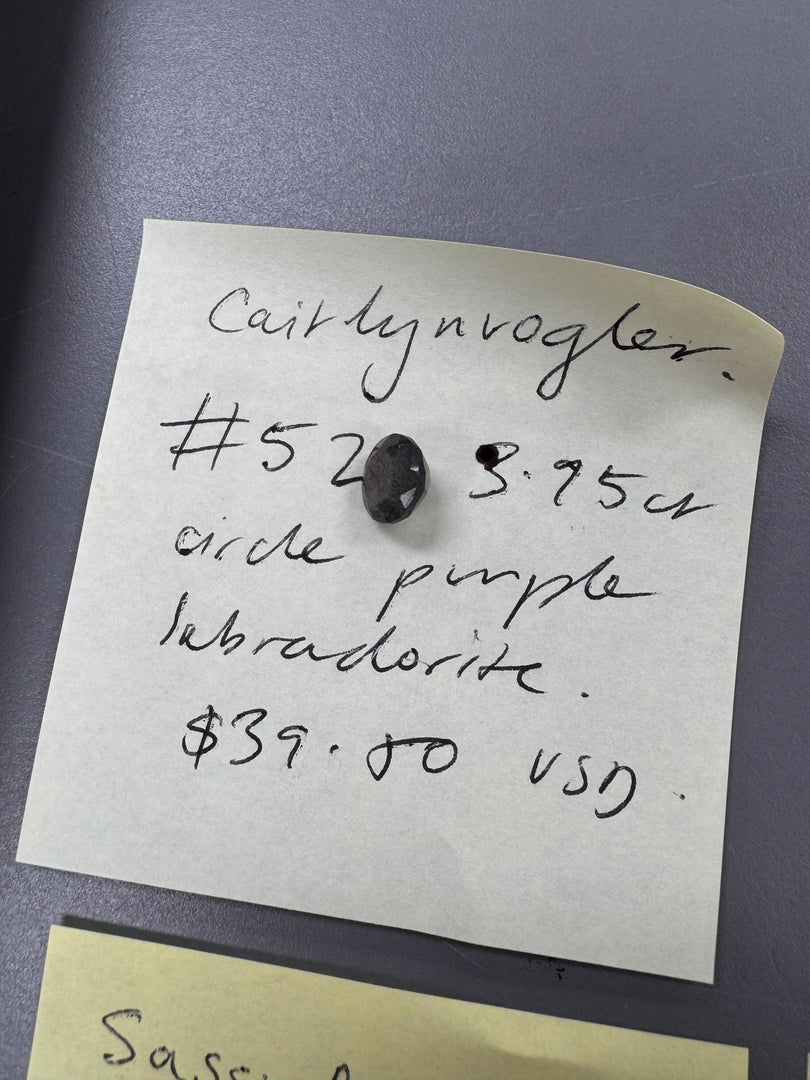 Caitlynvogler.
#52 3.95ct
circle purple
labradorite.
$39.80 USD.